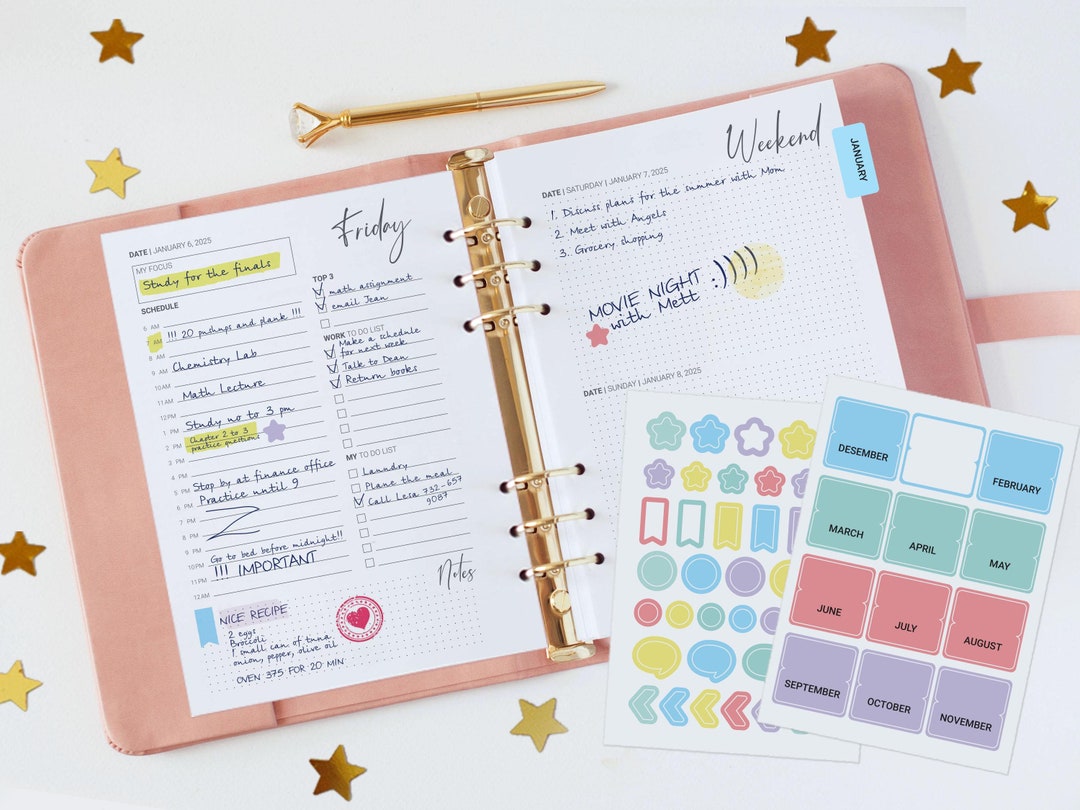 Friday
DATE | JANUARY 6, 2025
MY FOCUS
Study for the finals
SCHEDULE
6 AM
7 AM !!! 20 pushups and plank !!!
8 AM
9 AM Chemistry Lab
10 AM
11 AM Math Lecture
12 PM
1 PM Study no to 3 pm
2 PM Chapter 2 to 3
practice questions
3 PM
4 PM
5 PM Stop by at finance office
6 PM Practice until 9
7 PM
8 PM
9 PM
10 PM Go to bed before midnight!!
11 PM !!! IMPORTANT
12 AM
TOP 3
math assignment
email Jean
WORK TO DO LIST
Make a schedule
for next week
Talk to Dean
Return books
MY TO DO LIST
Laundry
Plane the meal
Call Lesa 732-657
9087
Notes
NICE RECIPE
2 eggs
Broccoli
1 small can of tuna
onion, pepper, olive oil
OVEN 375 FOR 20 MIN
Weekend
DATE | SATURDAY | JANUARY 7, 2025
1. Discuss plans for the summer with Mom
2. Meet with Angels
3. Grocery shopping
MOVIE NIGHT :)))))
with Mett
DATE | SUNDAY | JANUARY 8, 2025
JANUARY
DESEMBER
FEBRUARY
MARCH
APRIL
MAY
JUNE
JULY
AUGUST
SEPTEMBER
OCTOBER
NOVEMBER